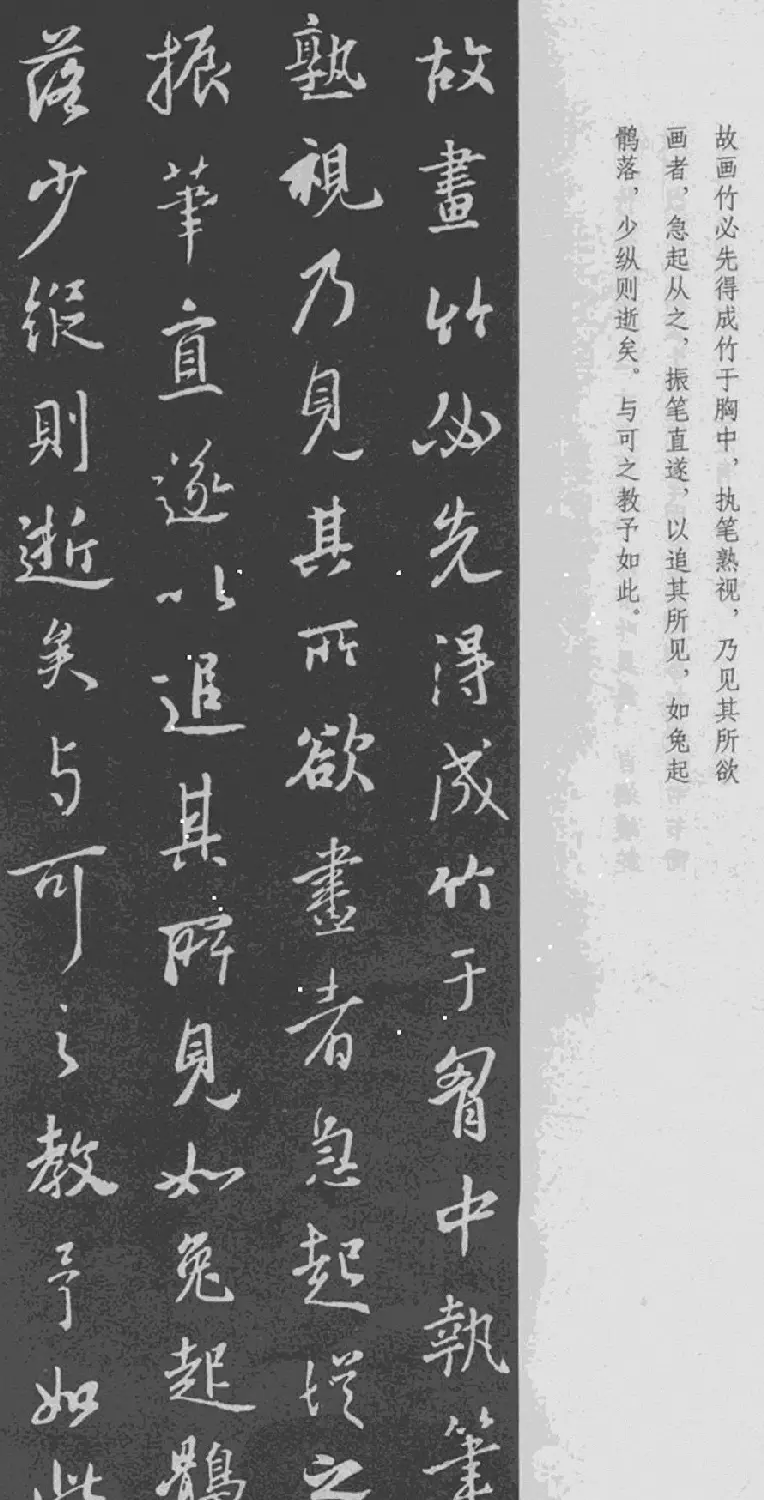 故画竹必先得成竹于胸中，执笔熟视，乃见其所欲
画者，急起从之，振笔直遂，以追其所见，如兔起
鹘落，少纵则逝矣。与可之教予如此。
故畫竹必先得成竹于胷中執筆
熟視乃見其所欲畫者急起從之
振筆直遂以追其所見如兔起鶻
落少縱則逝矣与可之教予如此